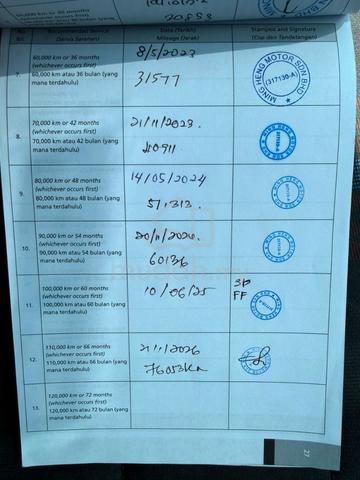 20,858
No. Recommended Service Date (Tarikh) Stamped and Signature
Bil. (Servis Saranan) Mileage (Jarak) (Cap dan Tandatangan)
7. 60,000 km or 36 months
(whichever occurs first)
60,000 km atau 36 bulan (yang
mana terdahulu)
8/5/2023
31577
MING HENG MOTOR SDN BHD
(317139-A)
8. 70,000 km or 42 months
(whichever occurs first)
70,000 km atau 42 bulan (yang
mana terdahulu)
21/11/2023.
40911
9. 80,000 km or 48 months
(whichever occurs first)
80,000 km atau 48 bulan (yang
mana terdahulu)
14/05/2024
51,313.
10. 90,000 km or 54 months
(whichever occurs first)
90,000 km atau 54 bulan (yang
mana terdahulu)
20/11/2024.
60136
11. 100,000 km or 60 months
(whichever occurs first)
100,000 km atau 60 bulan (yang
mana terdahulu)
10/06/25
FF
12. 110,000 km or 66 months
(whichever occurs first)
110,000 km atau 66 bulan (yang
mana terdahulu)
2/1/2026
76053KM
13. 120,000 km or 72 months
(whichever occurs first)
120,000 km atau 72 bulan (yang
mana terdahulu)
27